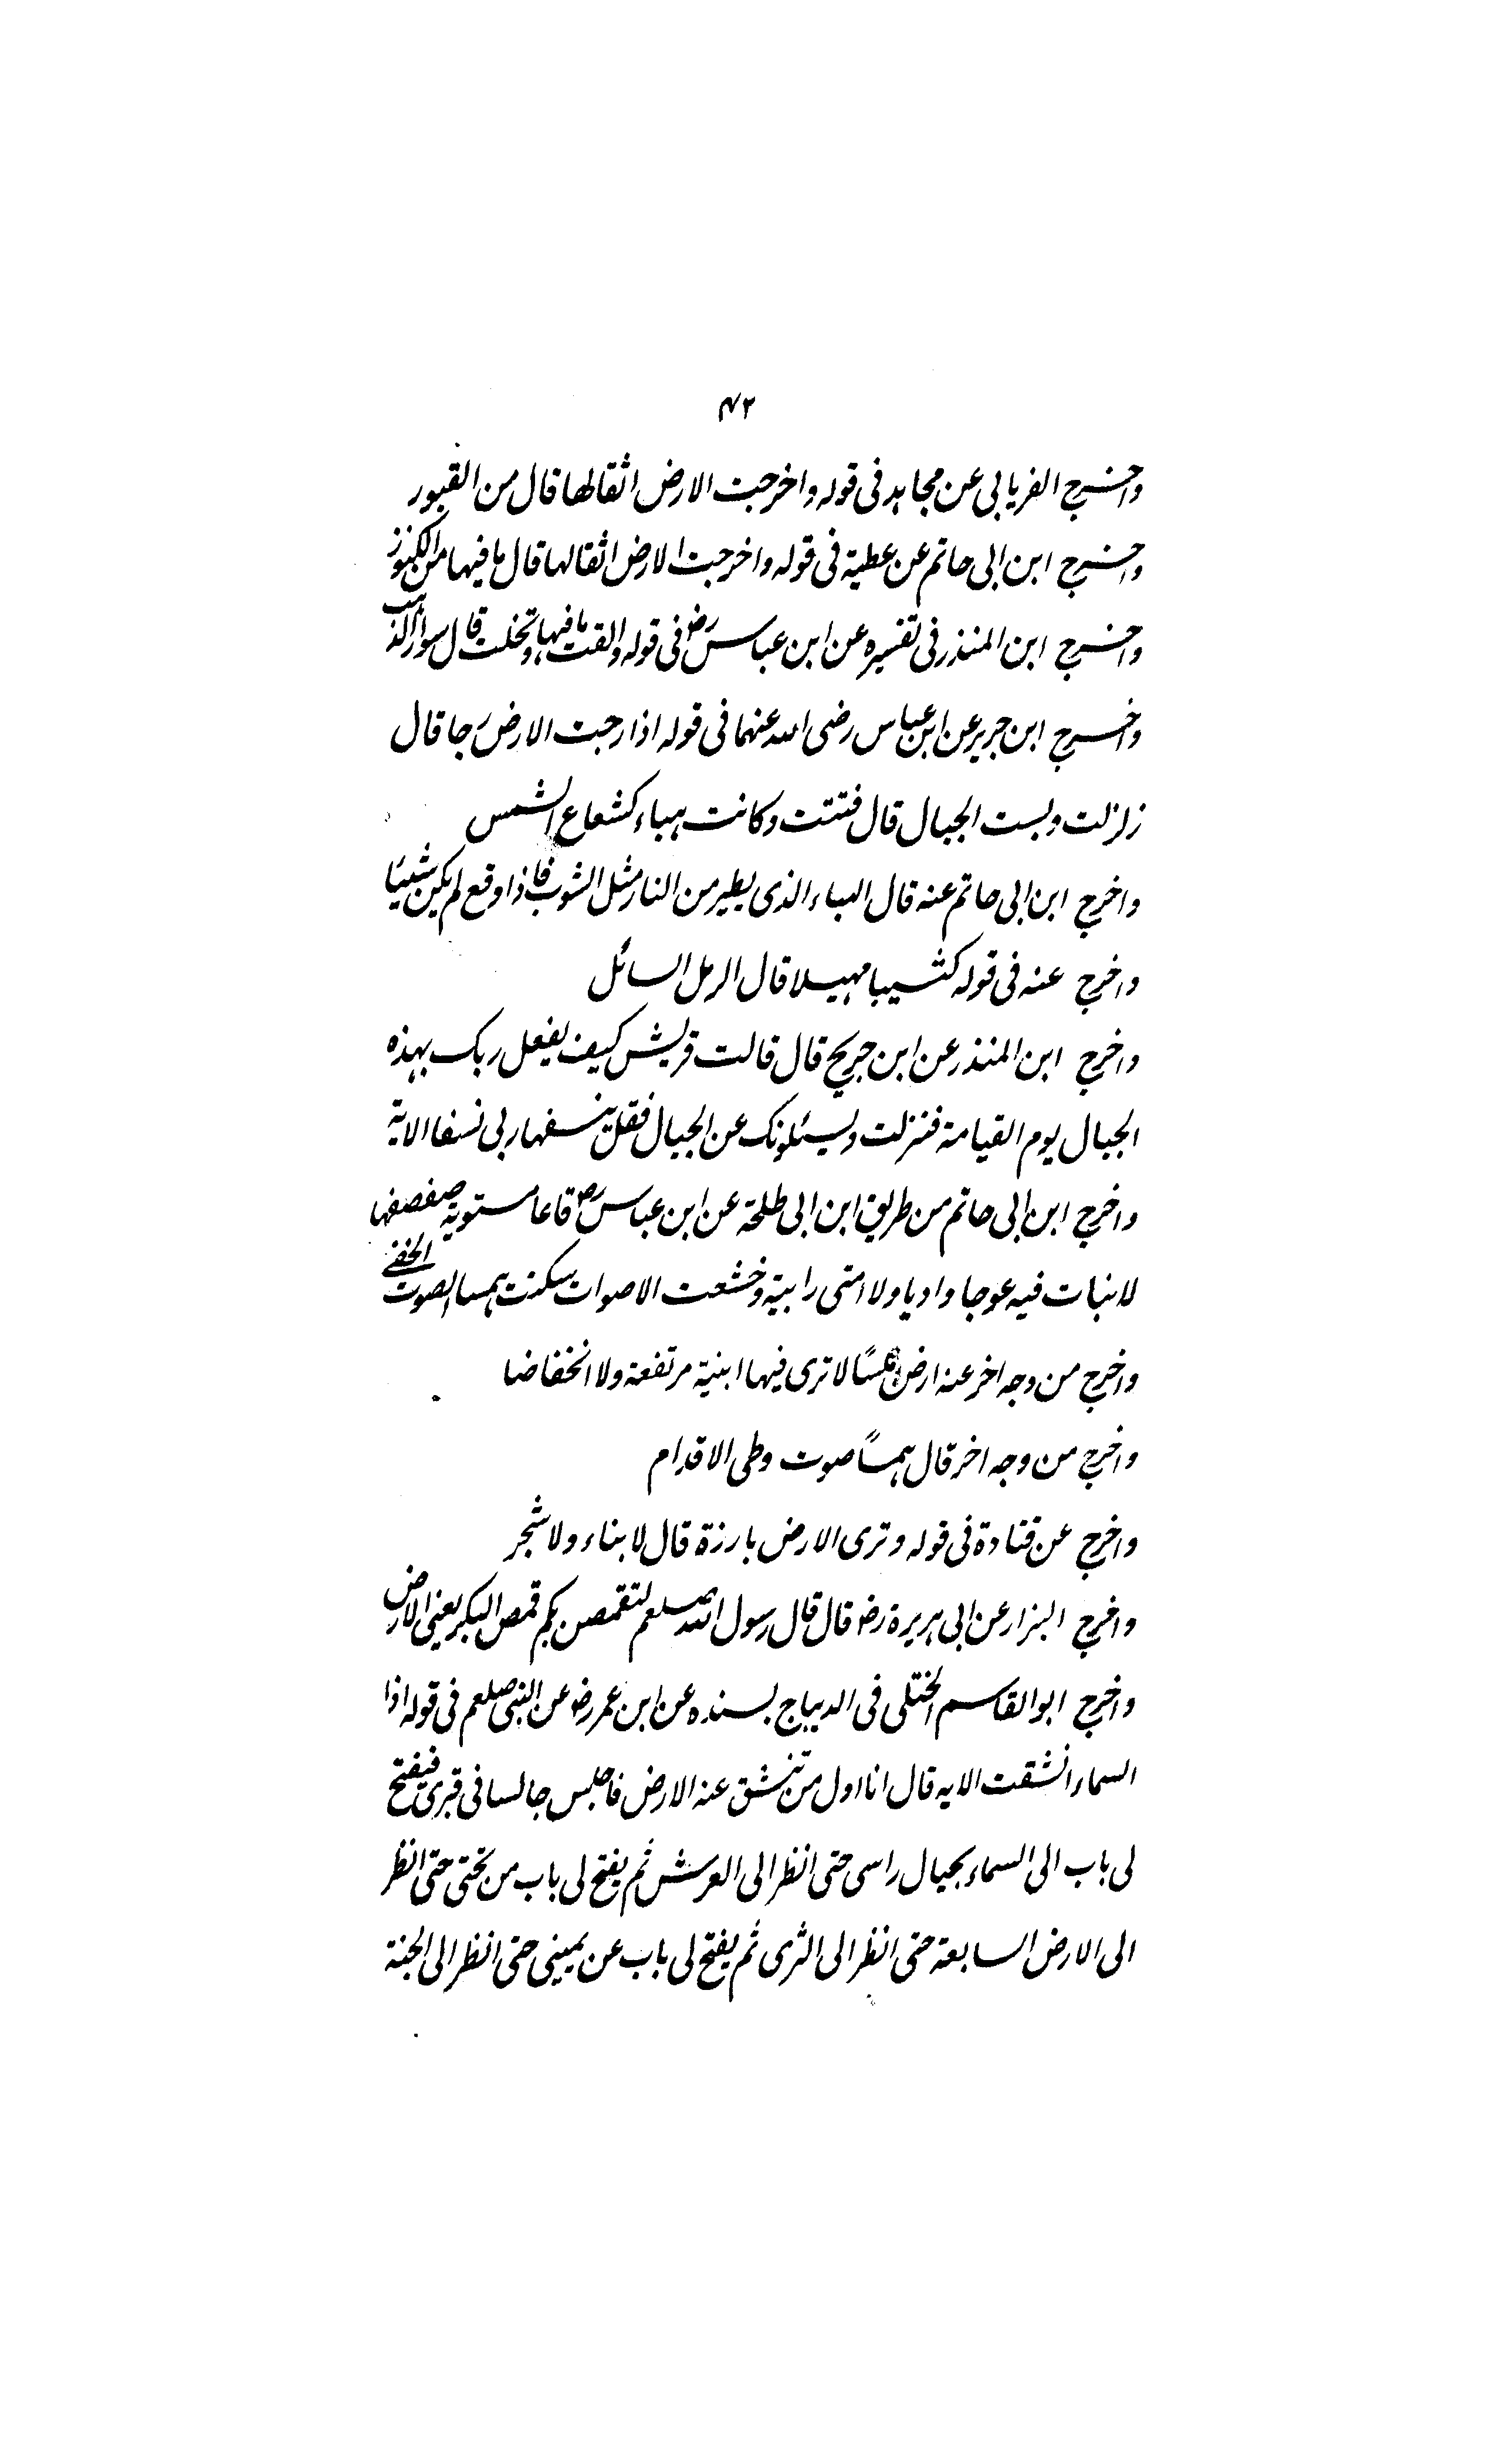 ۴۲
واخرج الفريابي عن مجاهد في قوله واخرجت الارض اثقالها قال من القبور
واخرج ابن ابي حاتم عن عطية في قوله واخرجت الارض اثقالها قال ما فيها من الكنوز
واخرج ابن المنذر في تفسيره عن ابن عباس رض في قوله والقت ما فيها وتخلت قال سوار الذهب
واخرج ابن جرير عن ابن عباس رضى الله عنهما في قوله اذا رجت الارض رجا قال
زلزلت وبست الجبال قال فتتت وكانت هباء كشعاع الشمس
واخرج ابن ابي حاتم عنه قال الهباء الذى يطير من النار مثل الشوب فاذا وقع لم يكن شيئا
واخرج عنه في قوله كثيبا مهيلا قال الرمل السائل
واخرج ابن المنذر عن ابن جريج قال قالت قريش كيف يفعل ربك بهذه
الجبال يوم القيامة فنزلت ويسئلونك عن الجبال فقل ينسفها ربى نسفا الاية
واخرج ابن ابي حاتم من طريق ابن ابي طلحة عن ابن عباس رض قاعا مستوية صفصفها
لا نبات فيه عوجا واديا ولا امتى رابية وخشعت الاصوات سكنت همسا الصوت الخفي
واخرج من وجه اخر عنه ارض ملسًا لا ترى فيها ابنية مرتفعة ولا انخفاضا
واخرج من وجه اخر قال همسًا صوت وطى الاقدام
واخرج عن قتادة في قوله وترى الارض بارزة قال لا بناء ولا شجر
واخرج البزار عن ابي هريرة رض قال قال رسول الله صلعم لتقمصن بكم قمص البكر يعنى الارض
واخرج ابو القاسم الختلى في الديباج بسنده عن ابن عمر رض عن النبى صلعم في قوله اذا
السماء انشقت الايه قال انا اول من تنشق عنه الارض فاجلس جالسا في قبرى فيفتح
لى باب الى السماء بحيال راسى حتى انظر الى العرش ثم يفتح لى باب من تحتى حتى انظر
الى الارض السابعة حتى انظر الى الثرى ثم يفتح لى باب عن يمينى حتى انظر الى الجنة